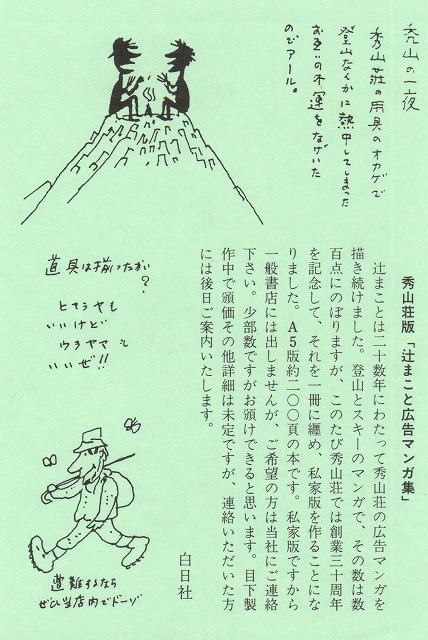 禿山の一夜
秀山荘の用具のオカゲで
登山なんかに熱中してしまった
お互いの不運をなげいた
のでアール。
秀山荘版「辻まこと広告マンガ集」
辻まことは二十数年にわたって秀山荘の広告マンガを
描き続けました。登山とスキーのマンガで、その数は数
百点にのぼりますが、このたび秀山荘では創業三十周年
を記念して、それを一冊に纏め、私家版を作ることにな
りました。A5版約二〇〇頁の本です。私家版ですから
一般書店には出しませんが、ご希望の方は当社にご連絡
下さい。少部数ですがお頒けできると思います。目下製
作中で頒価その他詳細は未定ですが、連絡いただいた方
には後日ご案内いたします。
白日社
道具は揃ったかい
?
ヒマラヤも
いいけど
ウラヤマも
いいぜ!!
遭難するなら
ぜひ当店内でドーゾ